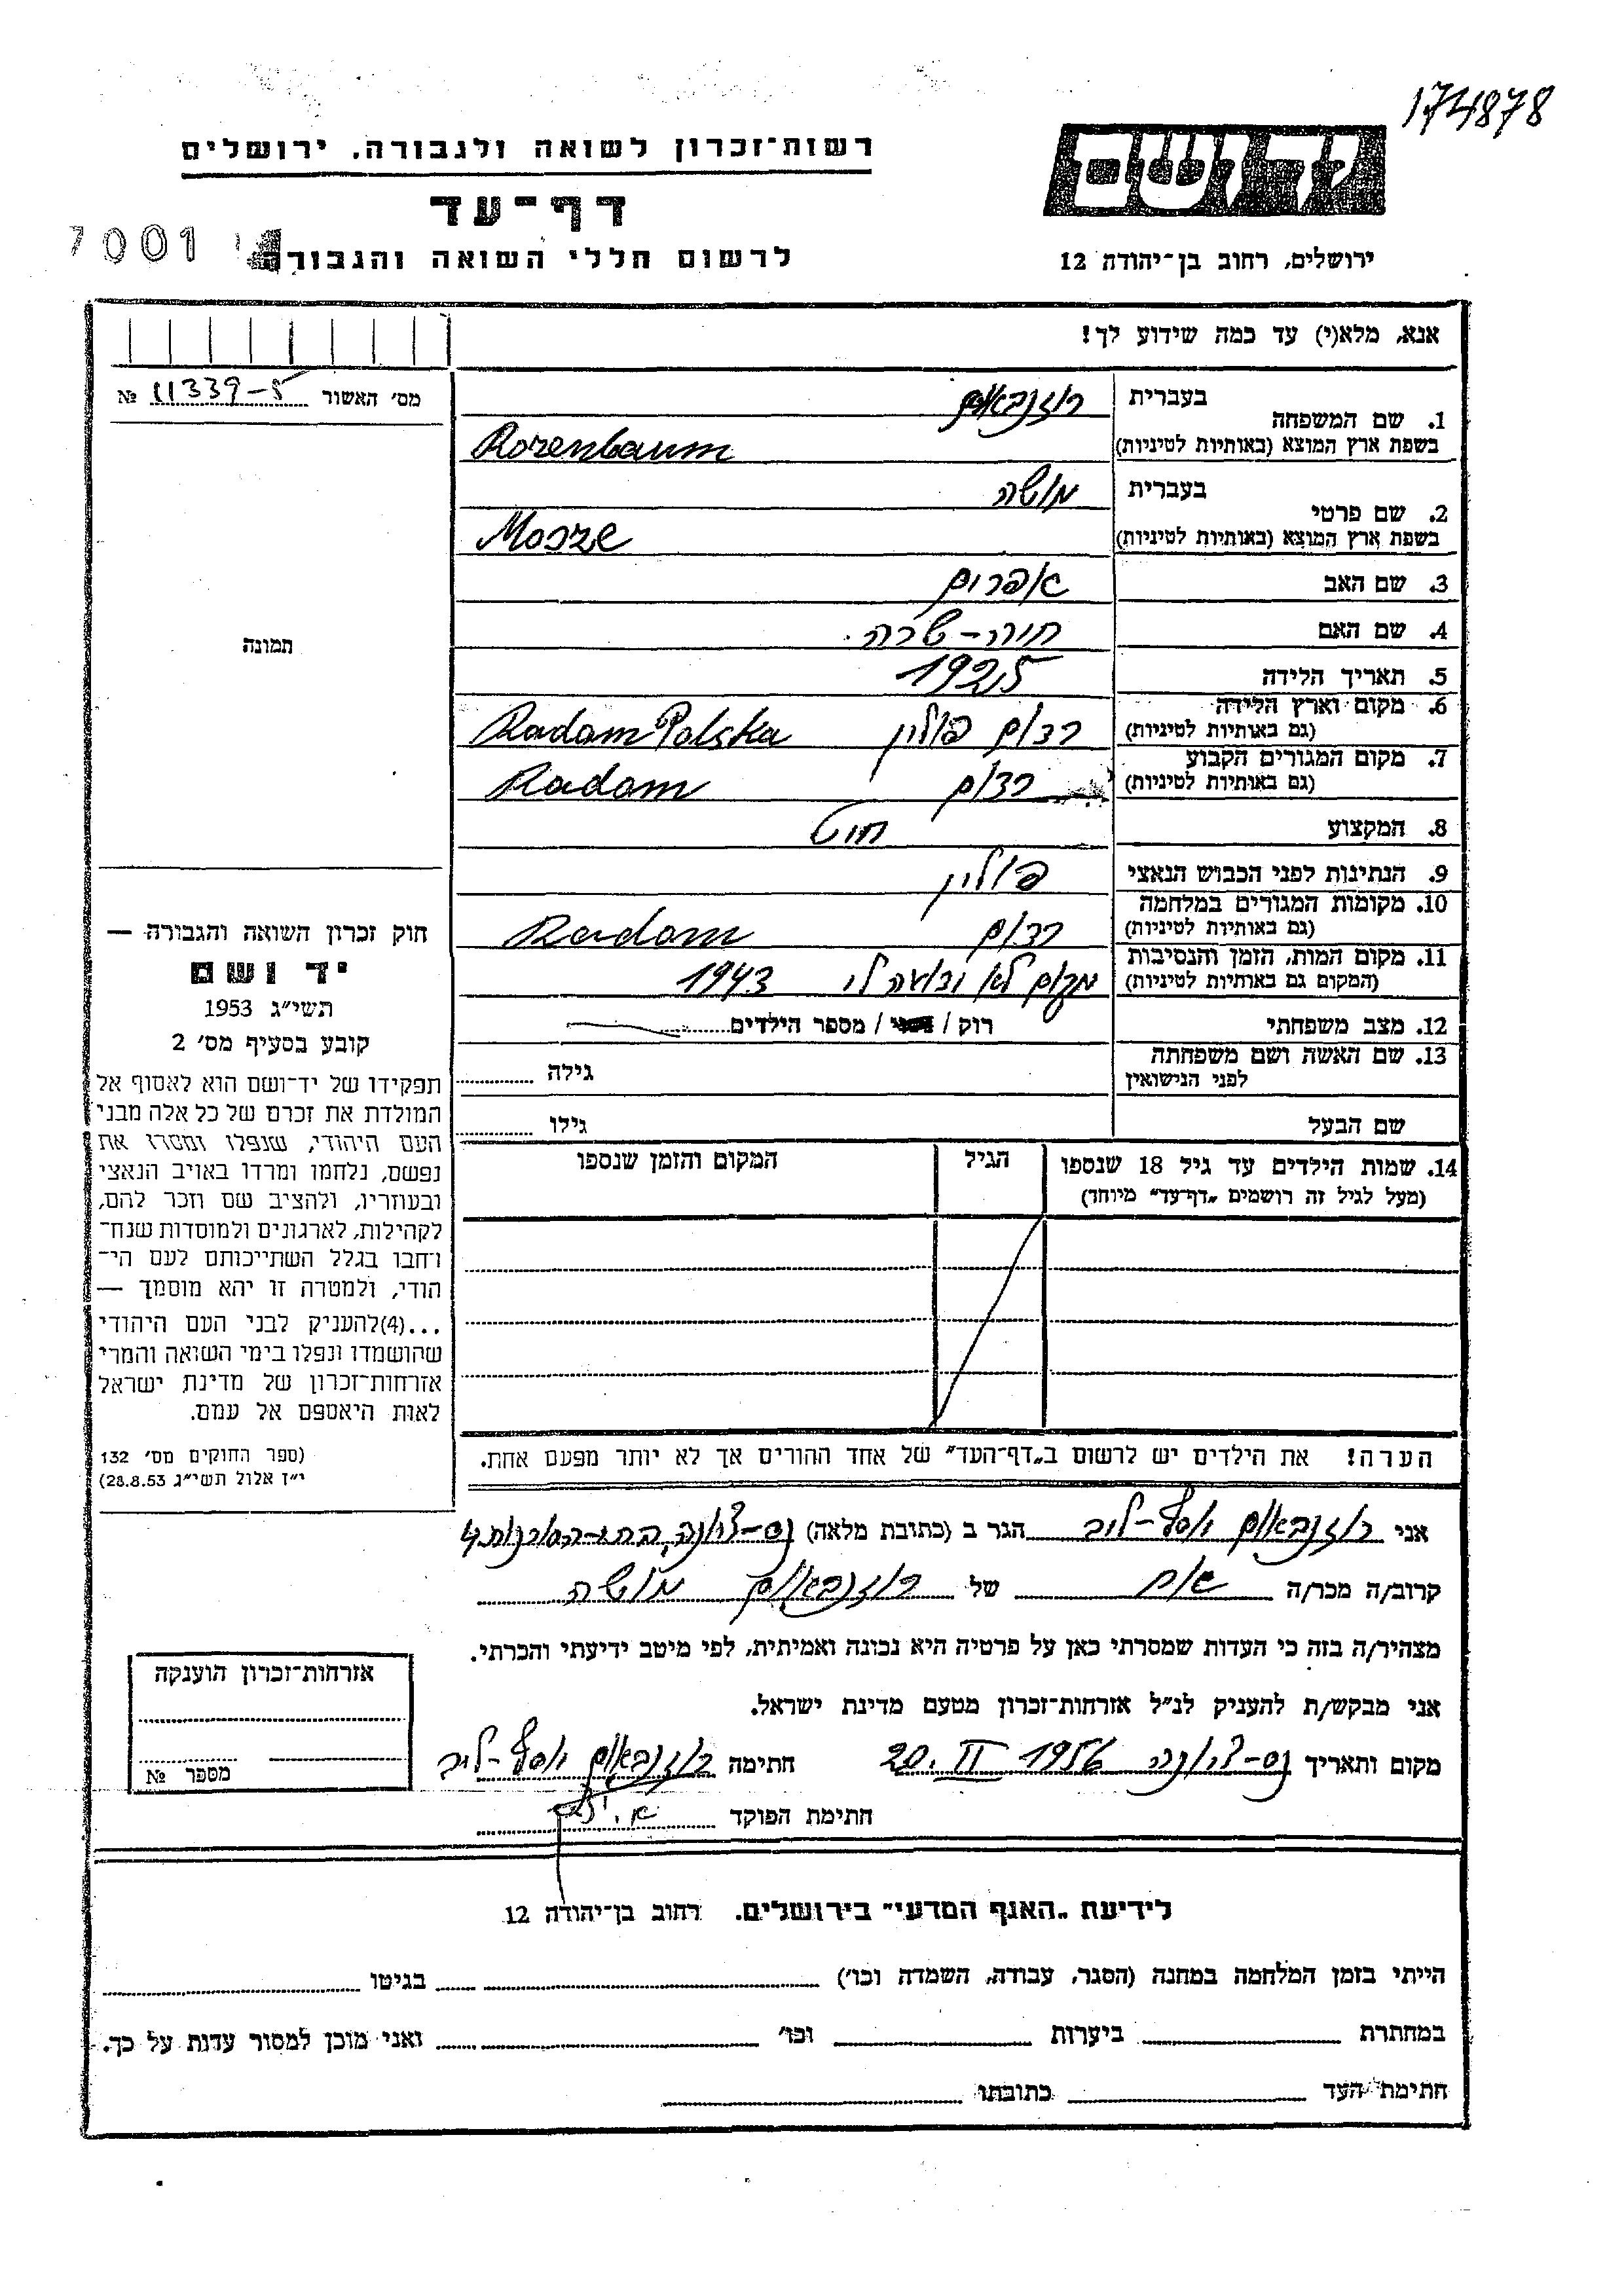 174878
יד ושם
רשות־זכרון לשואה ולגבורה, ירושלים
דף־עד
7001
לרשום חללי השואה והגבורה
ירושלים, רחוב בן־יהודה 12
אנא, מלא(י) עד כמה שידוע לך!
מס׳ האשור 11339-5 №
בעברית רוזנבאום
1. שם המשפחה
בשפת ארץ המוצא (באותיות לטיניות) Rozenbaum
בעברית מושה
2. שם פרטי
בשפת ארץ המוצא (באותיות לטיניות) Mosze
3. שם האב אפרום
4. שם האם חוה-שרה
תמונה
5. תאריך הלידה 1925
6. מקום וארץ הלידה רדום פולין Radom Polska
(גם באותיות לטיניות)
7. מקום המגורים הקבוע רדום Radom
(גם באותיות לטיניות)
8. המקצוע
9. הנתינות לפני הכבוש הנאצי פולין
10. מקומות המגורים במלחמה רדום Radom
(גם באותיות לטיניות)
11. מקום המות, הזמן והנסיבות מקום לא לי 1943
(המקום גם באותיות לטיניות)
12. מצב משפחתי רוק / / מספר הילדים
13. שם האשה ושם משפחתה
לפני הנישואין גילה
שם הבעל גילו
חוק זכרון השואה והגבורה —
יד ושם
תשי״ג 1953
קובע בסעיף מס׳ 2
תפקידו של יד־ושם הוא לאסוף אל
המולדת את זכרם של כל אלה מבני
העם היהודי, שנפלו ומסרו את
נפשם, נלחמו ומרדו באויב הנאצי
ובעוזריו, ולהציב שם וזכר להם,
לקהילות, לארגונים ולמוסדות שנח־
רבו בגלל השתייכותם לעם הי־
הודי, ולמטרה זו יהא מוסמך —
...(4) להעניק לבני העם היהודי
שהושמדו ונפלו בימי השואה והמרי
אזרחות־זכרון של מדינת ישראל
לאות היאספם אל עמם.
(ספר החוקים מס׳ 132
י״ז אלול תשי״ג 28.8.53)
14. שמות הילדים עד גיל 18 שנספו הגיל המקום והזמן שנספו
(מעל לגיל זה רושמים „דף־עד״ מיוחד)
הערה! את הילדים יש לרשום ב„דף־העד״ של אחד ההורים אך לא יותר מפעם אחת.
אני רוזנבאום יוסף-לייב הגר ב (כתובת מלאה) נס-ציונה,
קרוב/ה מכר/ה אח של רוזנבאום מושה
מצהיר/ה בזה כי העדות שמסרתי כאן על פרטיה היא נכונה ואמיתית, לפי מיטב ידיעתי והכרתי.
אני מבקש/ת להעניק לנ״ל אזרחות־זכרון מטעם מדינת ישראל.
מקום ותאריך נס-ציונה 20. II 1956 חתימה רוזנבאום יוסף-לייב
חתימת הפוקד
אזרחות־זכרון הוענקה
מספר №
לידיעת „האגף המדעי״ בירושלים. רחוב בן־יהודה 12
הייתי בזמן המלחמה במחנה (הסגר, עבודה, השמדה וכו׳) בגיטו
במחתרת ביערות וכו׳ ואני מוכן למסור עדות על כך.
חתימת העד כתובתו